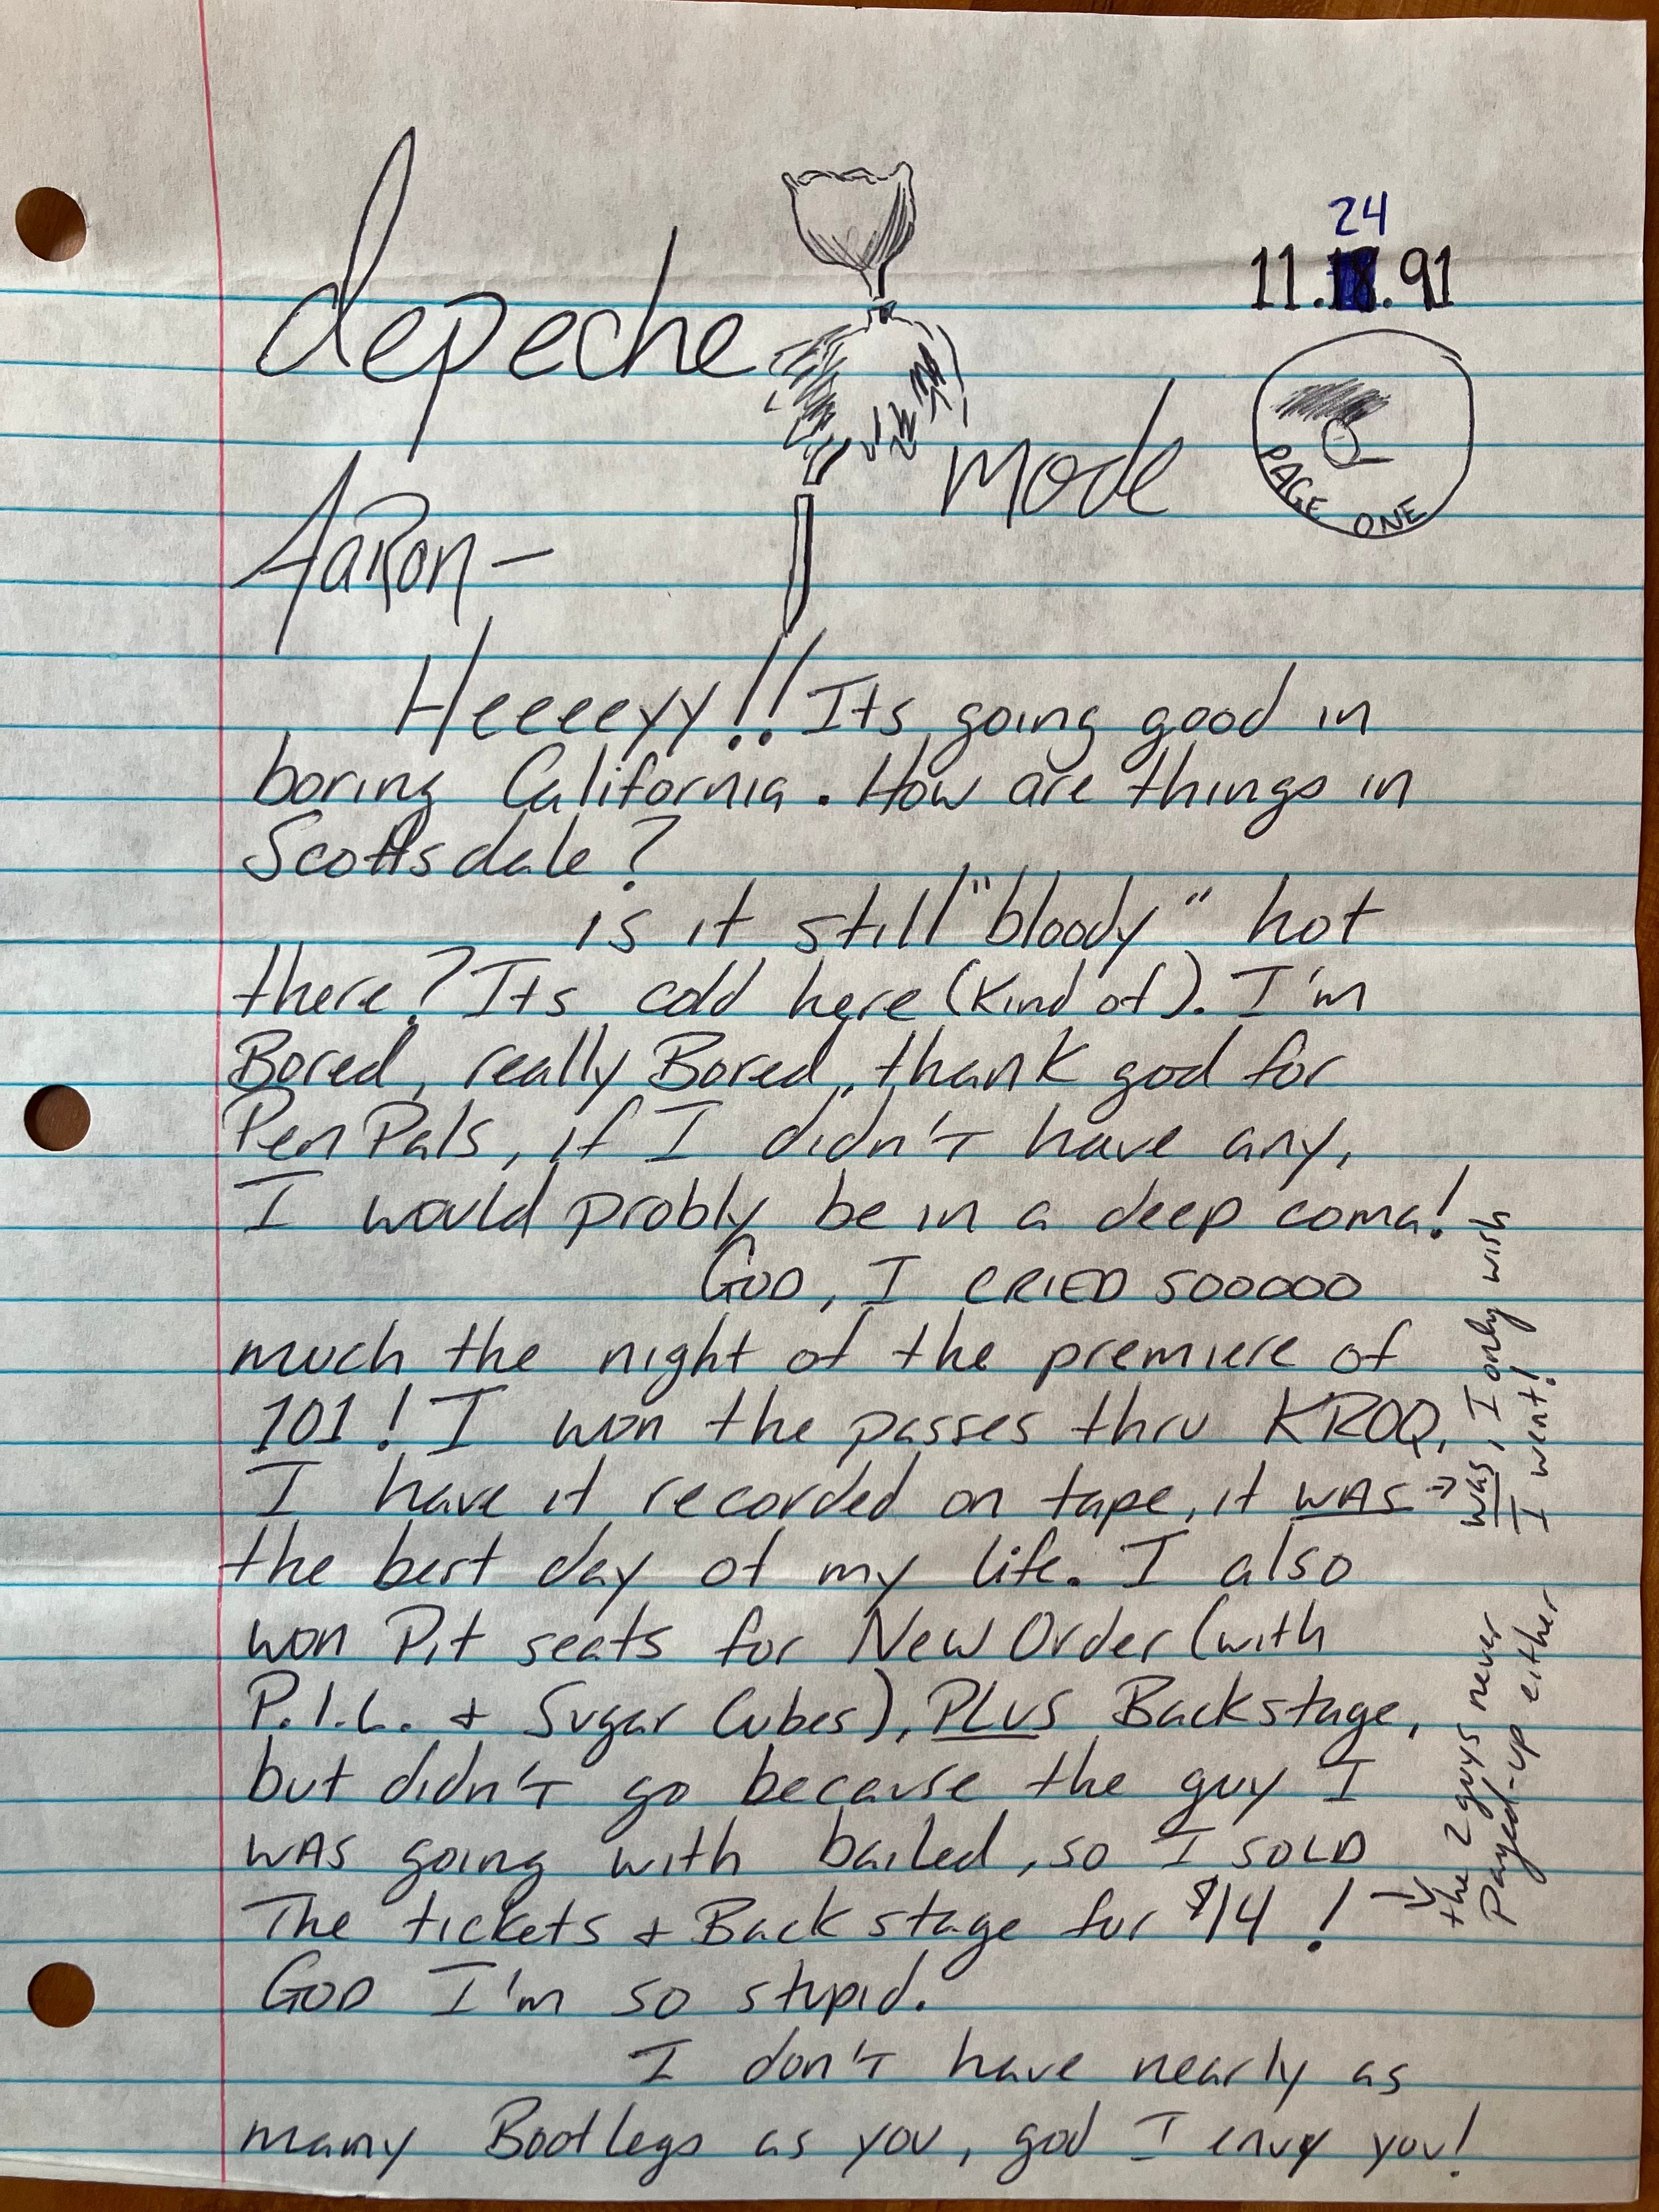 24
11.18.91
depeche
mode
PAGE ONE
AaRon-
Heeeeyy!! Its going good in
boring California. How are things in
Scottsdale?
is it still "bloody" hot
there? Its cold here (kind of). I'm
Bored, really Bored, thank god for
Pen Pals, if I didn't have any,
I would probly be in a deep coma!
GOD, I CRIED SOOOOO
much the night of the premiere of
101! I won the passes thru KROQ,
I have it recorded on tape, it WAS →
was, I only wish
I went!
the best day of my life. I also
won Pit seats for New Order (with
P.I.L. + Sugar Cubes), PLUS Backstage,
but didn't go because the guy I
WAS going with bailed, so I SOLD
The tickets + Back stage for $14! →
the 2 guys never
Payed-up either
GOD I'm so stupid.
I don't have nearly as
many Bootlegs as you, god I envy you!